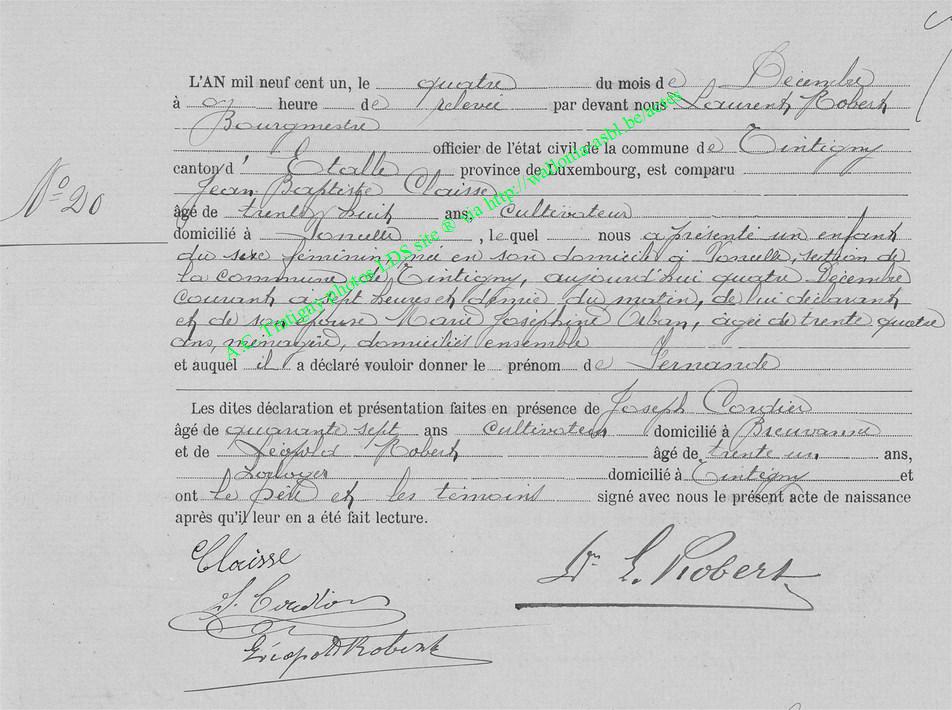 L'AN mil neuf cent un, le quatre du mois de Décembre
à heure de relevée par devant nous Laurent Robert
Bourgmestre
officier de l'état civil de la commune de Tintigny
canton d' Etalle province de Luxembourg, est comparu
Jean Baptiste Claisse
N° 20
âgé de trente huit ans, cultivateur
domicilié à , lequel nous a présenté un enfant
du sexe féminin, née en son domicile à , section de
la commune de Tintigny, aujourd'hui quatre Décembre
courant à sept heures et demie du matin, de lui déclarant
et de son épouse Marie Joséphine Orban, âgée de trente quatre
ans, ménagère, domiciliés ensemble
et auquel il a déclaré vouloir donner le prénom de Fernande
Les dites déclaration et présentation faites en présence de Joseph Cordier
âgé de quarante sept ans cultivateur domicilié à Breuvanne
et de Léopold Robert âgé de trente un ans,
domicilié à Tintigny et
ont le père et les témoins signé avec nous le présent acte de naissance
après qu'il leur en a été fait lecture.
Claisse
Dr L. Robert
J. Cordier
Léopold Robert
A.C. Tintigny photos LDS site ® via http://wallonia.asbl.be/actes